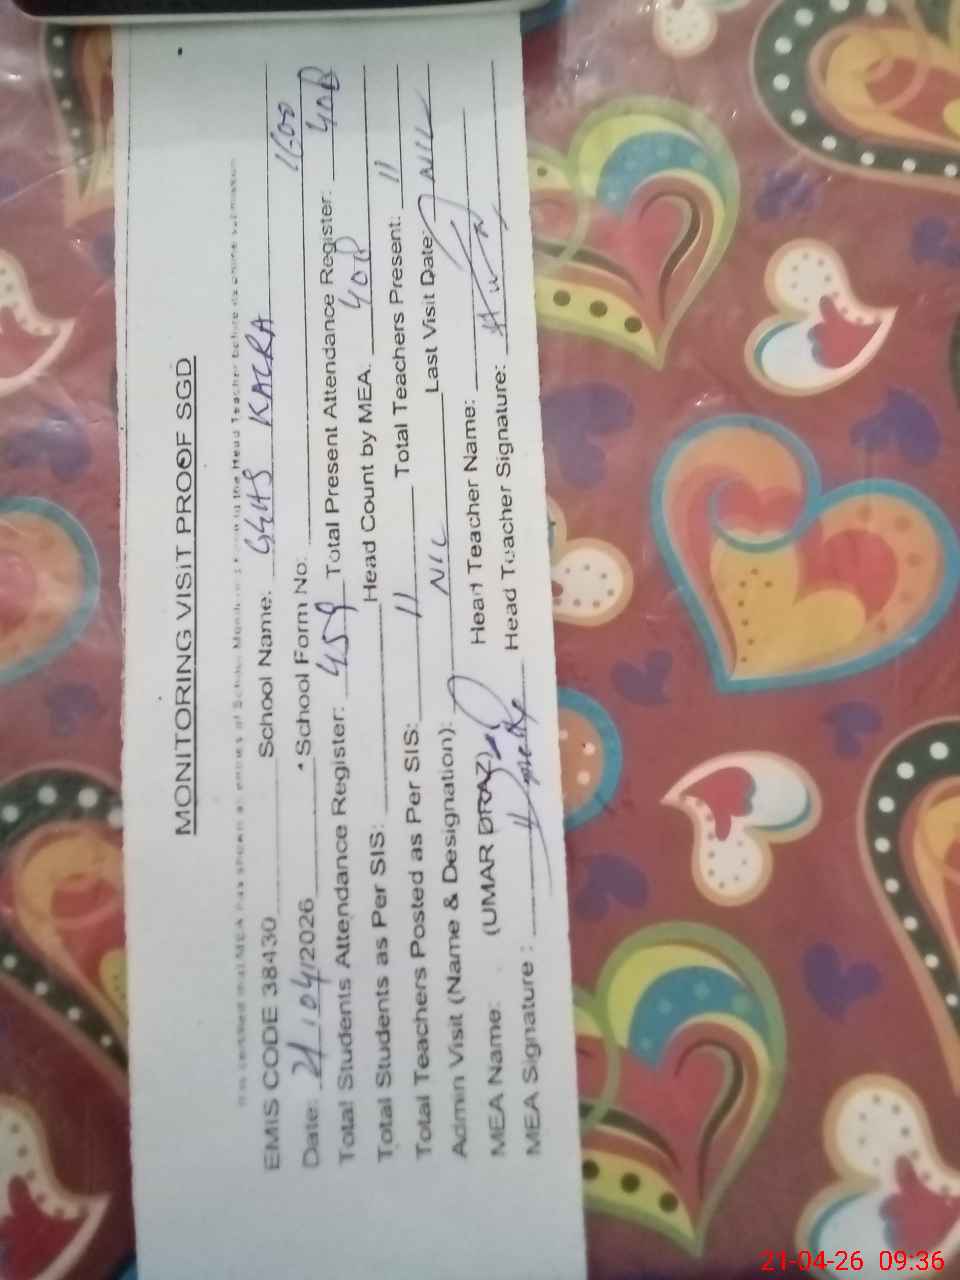 MONITORING VISIT PROOF SGD
It is certified that MEA has shown all entries of School Monitoring Form to the Head Teacher before its online submission
EMIS CODE 38430 School Name: GGHS KALRA
Date: 21/04/2026 School Form No:
Total Students Attendance Register: 459 Total Present Attendance Register: 408
Total Students as Per SIS: Head Count by MEA. 408
Total Teachers Posted as Per SIS: 11 Total Teachers Present: 11
Admin Visit (Name & Designation): NIL Last Visit Date: NIL
MEA Name: (UMAR DRAZ) Head Teacher Name:
MEA Signature : Head Teacher Signature:
21-04-26 09:36